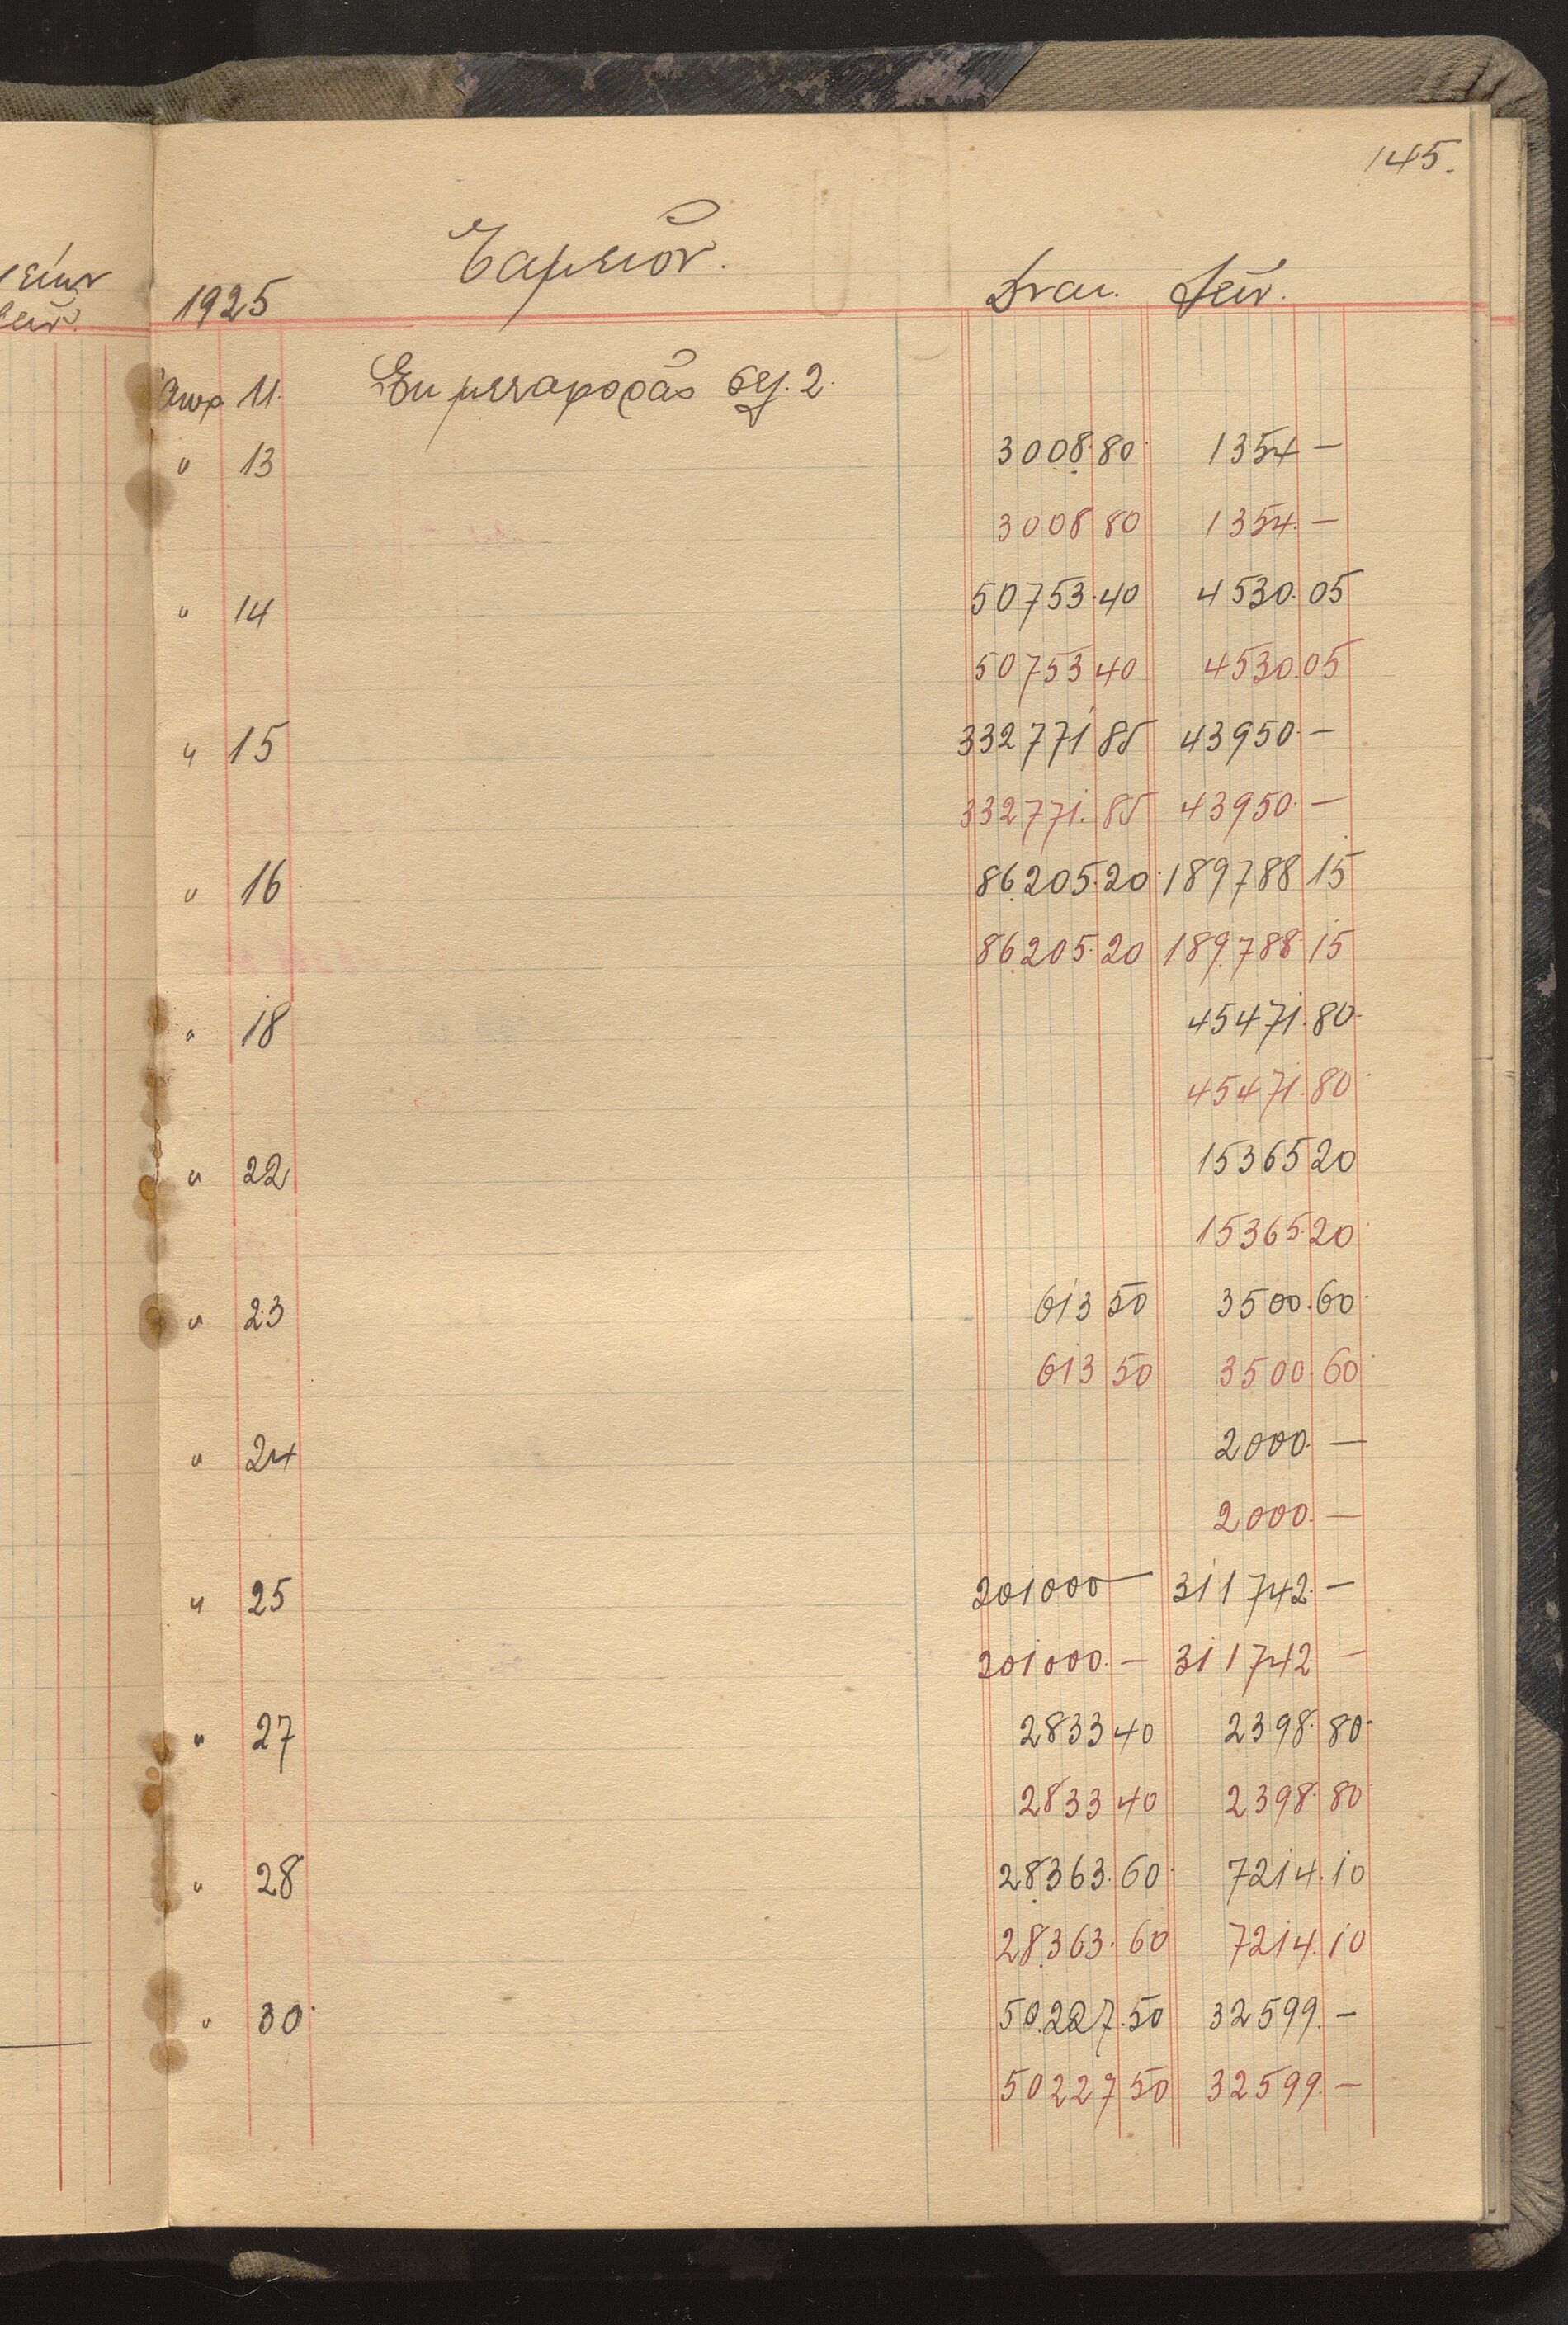 145.
Ταμεῖον.
1925
Δραχ. Λεῖν.
Ἀπρ 11. Ἐκ μεταφορᾶς σελ. 2.
" 13 3008.80 1354 —
3008 80 1354. —
" 14 50753.40 4530.05
50753 40 4530.05
" 15 332771 85 43950. —
332771. 85 43950. —
" 16 86.205.20 189788 15
86.205.20 189.788.15
" 18 45471.80
45471.80
" 22 15365 20
15365.20
" 23 613 50 3500.60
613 50 3500.60
" 24 2000. —
2000. —
" 25 201000 — 311742. —
201000. — 311742 —
" 27 2833 40 2398.80
2833 40 2398.80
" 28 28.363.60 7214.10
28.363.60 7214.10
" 30 50.227.50 32599. —
50227 50 32599. —